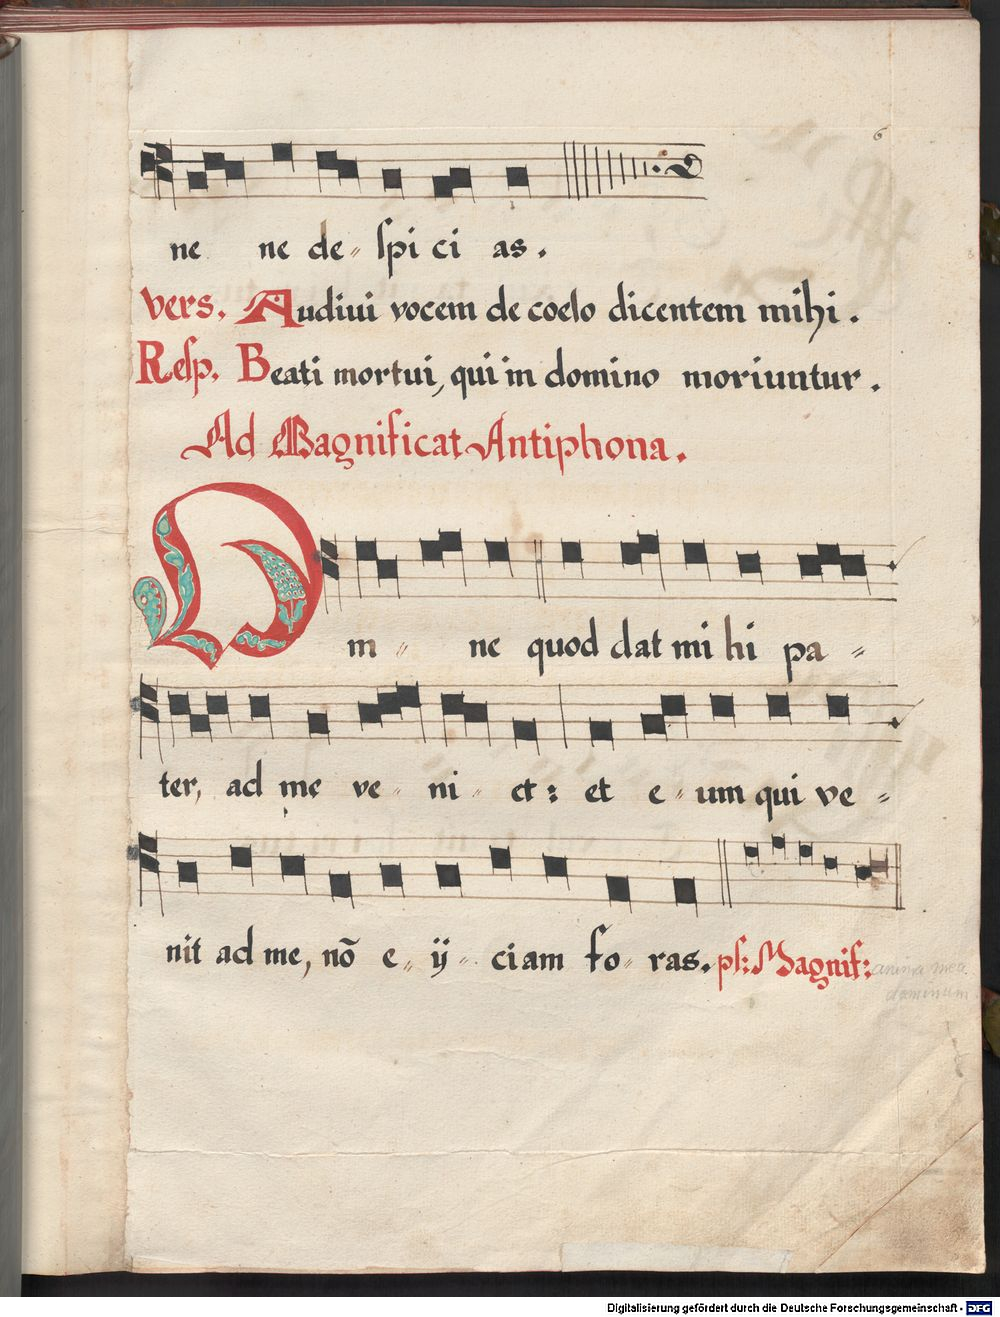 6
ne ne de„ spi ci as.
vers. Audiui vocem de coelo dicentem mihi.
Resp. Beati mortui, qui in domino moriuntur.
Ad Magnificat Antiphona.
Om „ ne quod dat mi hi pa „
ter, ad me ve „ ni „ et: et e „ um qui ve „
nit ad me, nō e „ ij „ ciam fo „ ras. ps: Magnif: anima mea
dominum
Digitalisierung gefördert durch die Deutsche Forschungsgemeinschaft - DFG